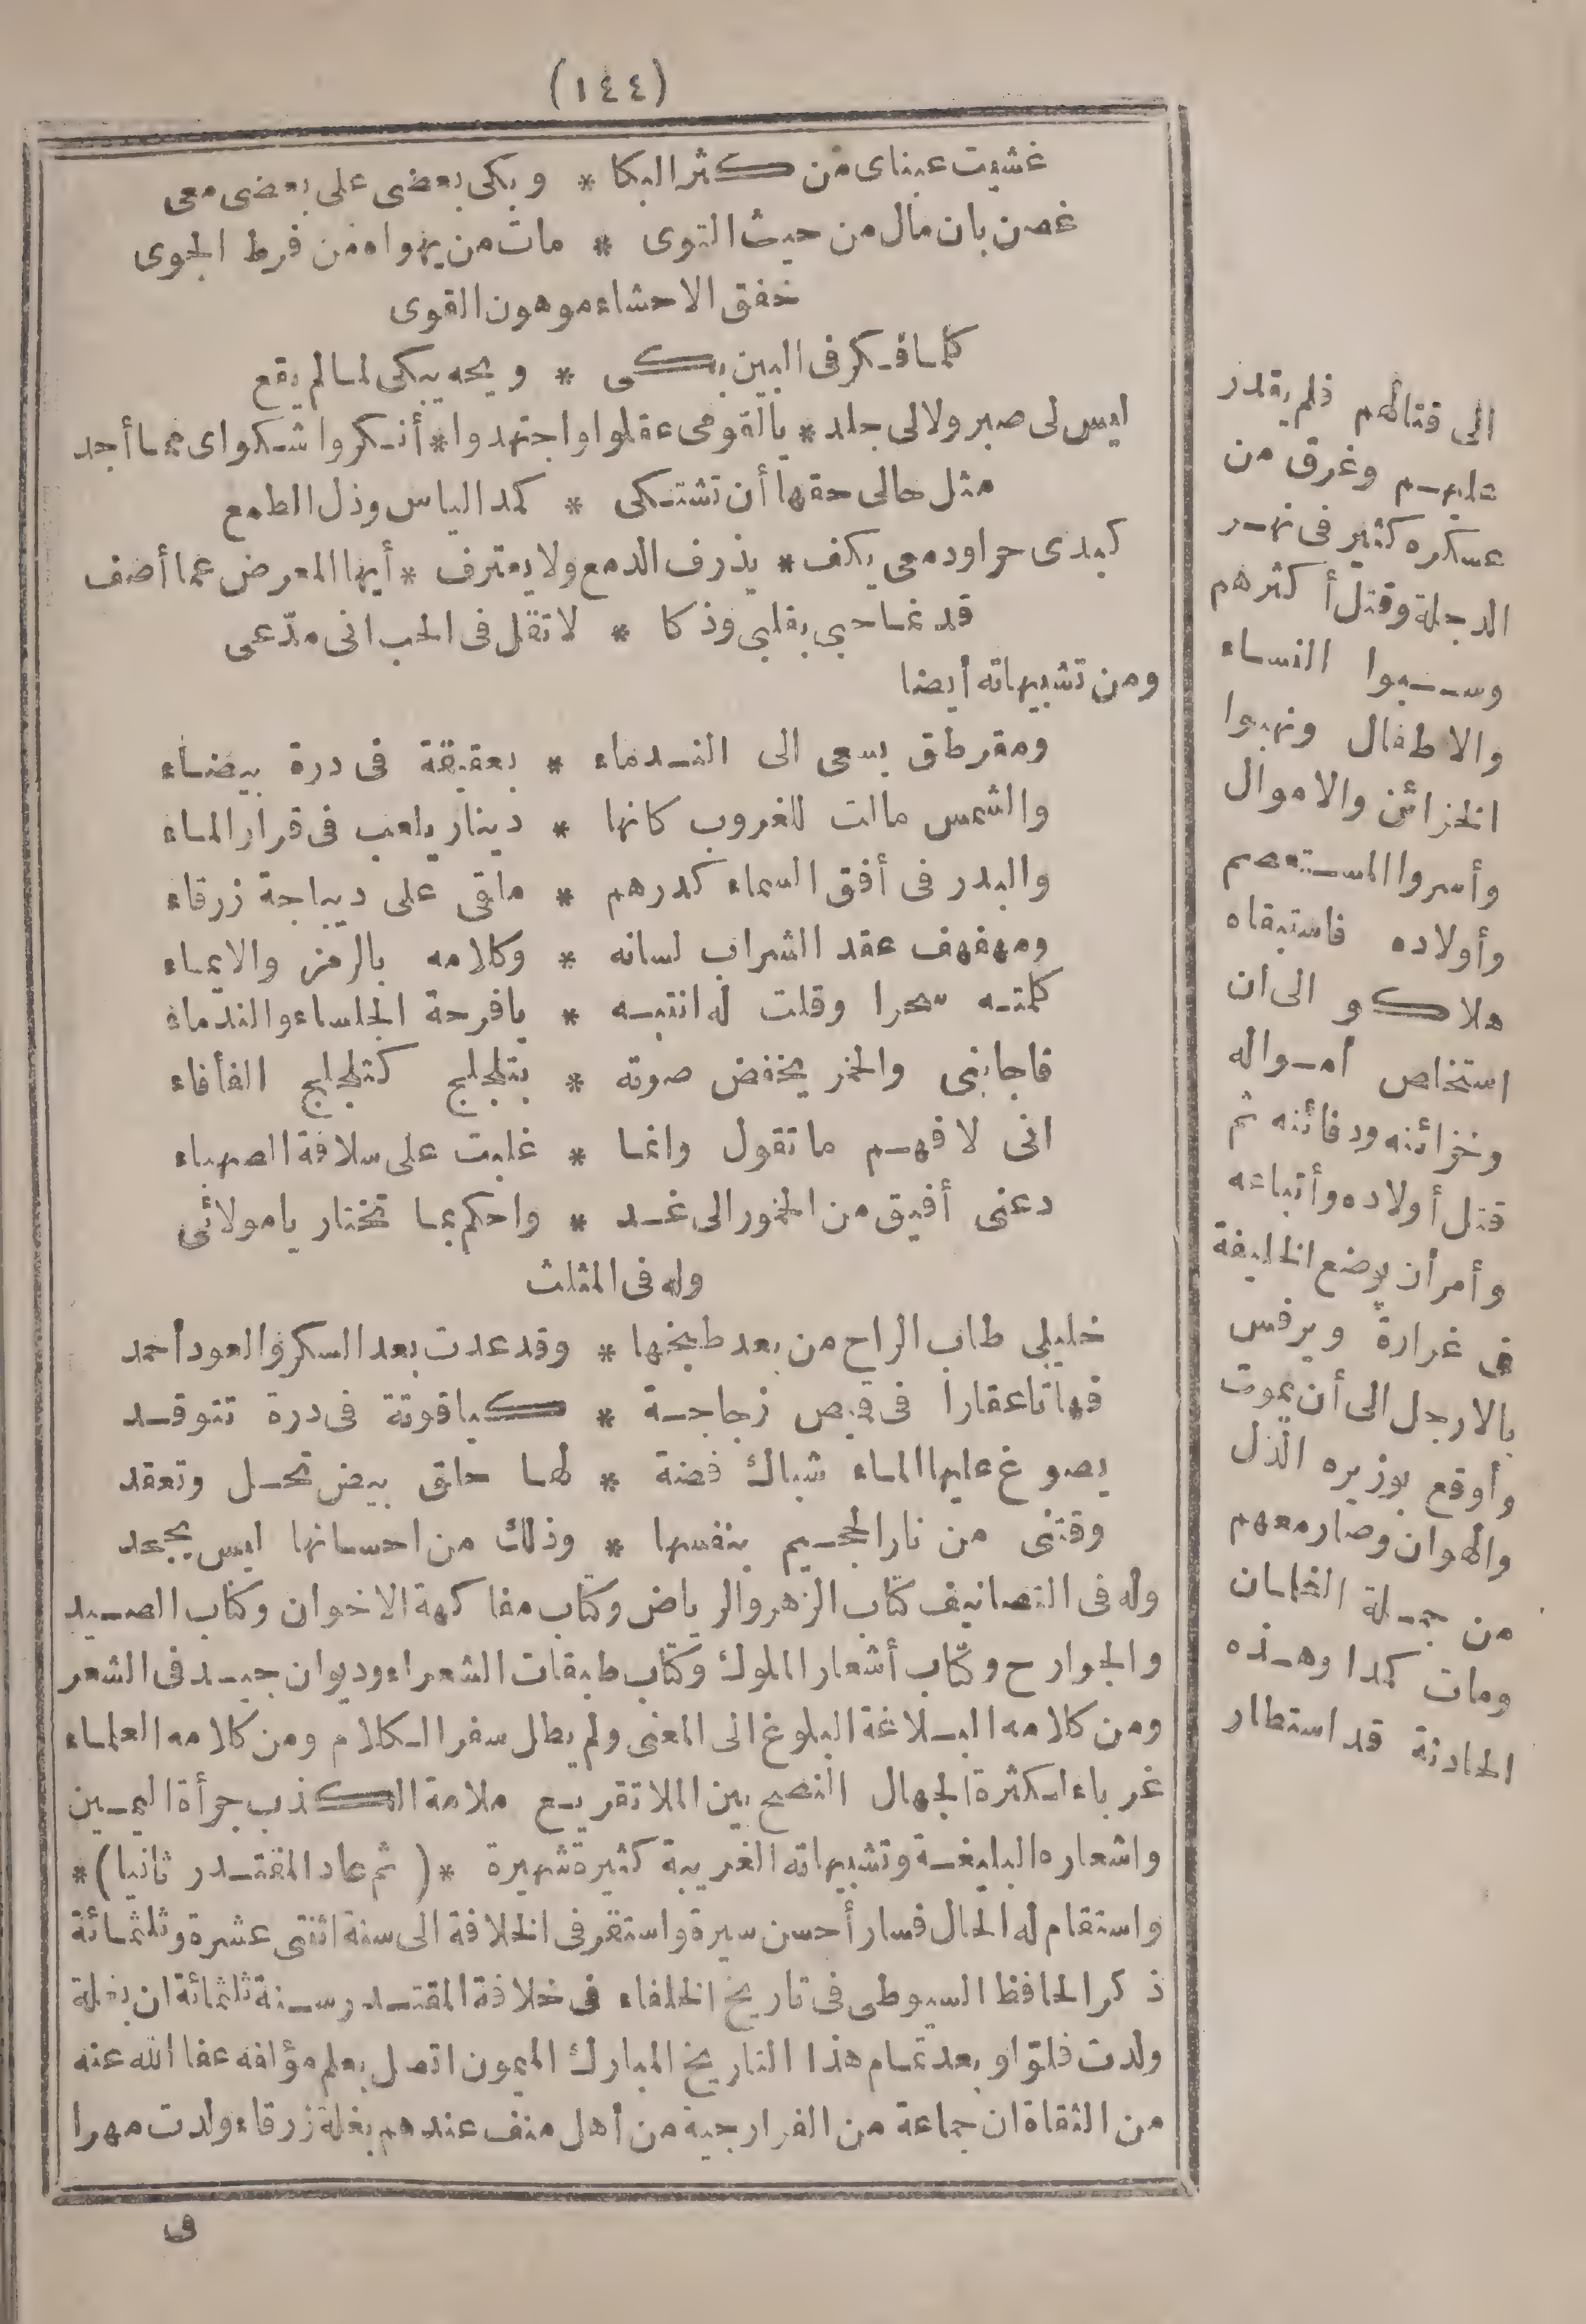 (١٤٤)
غشيت عيناى من كثر البكا * وبكى بعضى على بعضى معى
غصن بان مال من حيث التوى * مات من يهواه من فرط الجوى
خفق الاحشاء موهون القوى
كلما فكر فى البين بكى * ويحه يبكى لما لم يقع
ليس لى صبر ولا لى جلد * يالقومى عقلوا واجتهدوا * أنكروا شكواى مما أجد
مثل حالى حقها أن تشتكى * كمد الياس وذل الطمع
كبدى حراودمعى يكف * يذرف الدمع ولا يعترف * أيها المعرض عما أصف
قد نما حبي بقلبي وذكا * لا تقل فى الحب انى مدّعى
ومن تشبيهاته أيضا
ومقرطق يسعى الى الندماء * بعقيقة فى درة بيضاء
والشمس مالت للغروب كانها * دينار يلعب فى قرار الماء
والبدر فى أفق السماء كدرهم * ملقى على ديباجة زرقاء
ومهفهف عقد الشراب لسانه * وكلامه بالرمز والايماء
كلمته سحرا وقلت له انتبه * يا فرحة الجلساء والندماء
فاجابنى والخمر يخفض صوته * بتلجلج كتلجلج الفأفاء
انى لا فهم ما تقول وانما * غلبت على سلافة الصهباء
دعنى أفيق من الخمور الى غد * واحكم بما تختار يا مولائى
وله فى المثلث
خليلى طاب الراح من بعد طبخها * وقد عدت بعد السكر والعود أحمد
فهاتا عقارا فى قيص زجاجة * كياقوتة فى درة تتوقد
يصوغ عليها الماء شباك فضة * لها حلق بيض تحل وتعقد
وقتنى من نار الجحيم بنفسها * وذلك من احسانها ليس يجحد
وله فى التصانيف كتاب الزهر والرياض وكتاب مفاكهة الاخوان وكتاب الصيد
والجوارح وكتاب أشعار الملوك وكتاب طبقات الشعراء وديوان جيد فى الشعر
ومن كلامه البلاغة البلوغ الى المعنى ولم يطل سفر الكلام ومن كلامه العلماء
غرباء لكثرة الجهال النصح بين الملا تقريع ملامة الكذب جرأة اليمين
واشعاره البليغة وتشبيهاته الغريبة كثيرة شهيرة *(ثم عاد المقتدر ثانيا)*
واستقام له الحال فسار أحسن سيرة واستقر فى الخلافة الى سنة اثنتى عشرة وثلثمائة
ذكر الحافظ السيوطى فى تاريخ الخلفاء فى خلافة المقتدر سنة ثلثمائة ان بغلة
ولدت فلوّا وبعد تمام هذا التاريخ المبارك الميمون اتصل بعلم مؤلفه عفا الله عنه
من الثقاة ان جماعة من الفرارجية من أهل منف عندهم بغلة زرقاء ولدت مهرا
فى
الى قتالهم فلم يقدر
عليهم وغرق من
عسكره كثير فى نهر
الدجلة وقتل أكثرهم
وسبوا النساء
والاطفال ونهبوا
الخزائن والاموال
وأسروا المستعصم
وأولاده فاستبقاه
هلاكو الى ان
استخلص أمواله
وخزائنه ودفائنه ثم
قتل أولاده وأتباعه
وأمر أن يوضع الخليفة
فى غرارة ويرفس
بالارجل الى أن يموت
وأوقع بوزيره الذل
والهوان وصار معهم
من جملة الغلمان
ومات كمدا وهذه
الحادثة قد استطار